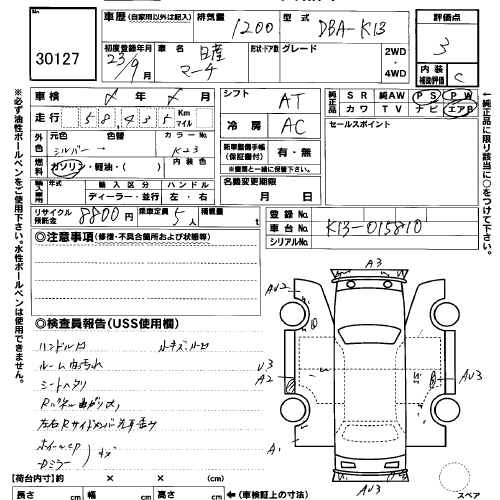 No 30127
車歴 (自家用以外は記入) 排気量 1200 型式 DBA-K13
評価点 3
内装補助評価 C
初度登録年月 23/9月 車名 日産 マーチ 形状・ドア数 グレード 2WD・4WD
車検 年 月
シフト AT
純正品 SR 純AW PS PW
カワ TV ナビ エアB
走行 58,435 Km マイル
冷房 AC
セールスポイント
外色 元色 シルバー 色替 カラーNo. K23
新車整備手帳(保証書付) 有・無
※書類と一緒に保管下さい。
燃料 ガソリン・軽油・( ) 内装色
輸入車 年式 輸入区分 ハンドル
ディーラー・並行 左・右
名義変更期限 月 日
リサイクル預託金 8800円 乗車定員 5人 積載量 t
登録No.
車台No. K13-015810
シリアルNo.
◎注意事項 (修復・不具合箇所および状態等)
◎検査員報告 (USS使用欄)
ハンドル
ルーム内汚れ
シートヘタリ
Rパネル曲がり
左右Rサイドメンバー
ホイールcap
Dミラー
キズ
A3
AU2
U3
A2
AU3
A1
AU3
【荷台内寸】約 × × (cm)
長さ cm 幅 cm 高さ cm ←(車検証上の寸法)
スペア
※必ず油性ボールペンをご使用下さい。水性ボールペンは使用できません。
↑純正品に限り該当に○をつけて下さい。